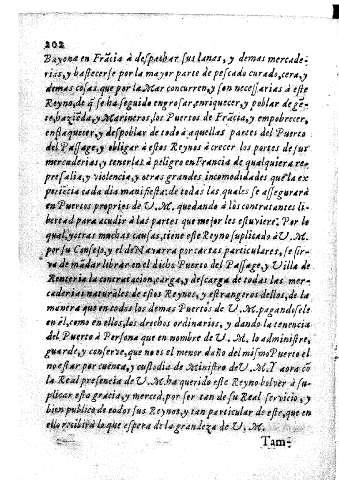 202
Bayona en Frãcia à despachar sus lanas, y demas mercade-
rias, y bastecerse por la mayor parte de pescado curado, cera, y
demas cosas que por la Mar concurren, y son necessarias à este
Reyno, de q̃ se ha seguido engrosar, enriquecer, y poblar de gẽ-
te, haziẽda, y Marineros, los Puertos de Frãcia, y empobrecer,
enflaquecer, y despoblar de todo à aquellas partes del Puerto
del Passage, y obligar à estos Reynos à crecer los portes de sus
mercaderias, y tenerlas à peligro en Francia de qualquiera re-
presalia, y violencia, y otras grandes incomodidades que la ex
periẽcia cada dia manifiesta: de todas las quales se assegurarà
en Puertos proprios de V. M. quedando à los contratantes li-
bertad para acudir à las partes que mejor les estuviere. Por lo
qual, y otras muchas causas, tiene este Reyno suplicado à V. M.
por su Consejo, y el de Navarra por cartas particulares, se sir-
va de mãdar librar en el dicho Puerto del Passage, y Villa de
Renteria la contratacion, carga, y descarga de todas las mer-
caderias naturales de estos Reynos, y estrangeros dellos, de la
manera que en todos los demas Puertos de V. M. pagandosele
en èl, como en ellos, los drechos ordinarios, y dando la tenencia
del Puerto à Persona que en nombre de V. M. lo administre,
guarde, y conserve, que no es el menor daño del mismo Puerto el
no estar por cuenta, y custodia de Ministro de V. M. Y aora cõ
la Real presencia de V. M. ha querido este Reyno bolver à su-
plicar esta gracia, y merced, por ser tan de su Real servicio, y
bien publico de todos sus Reynos, y tan particular de este, que en
ello recibirà lo que espera de la grandeza de V. M.
Tam-